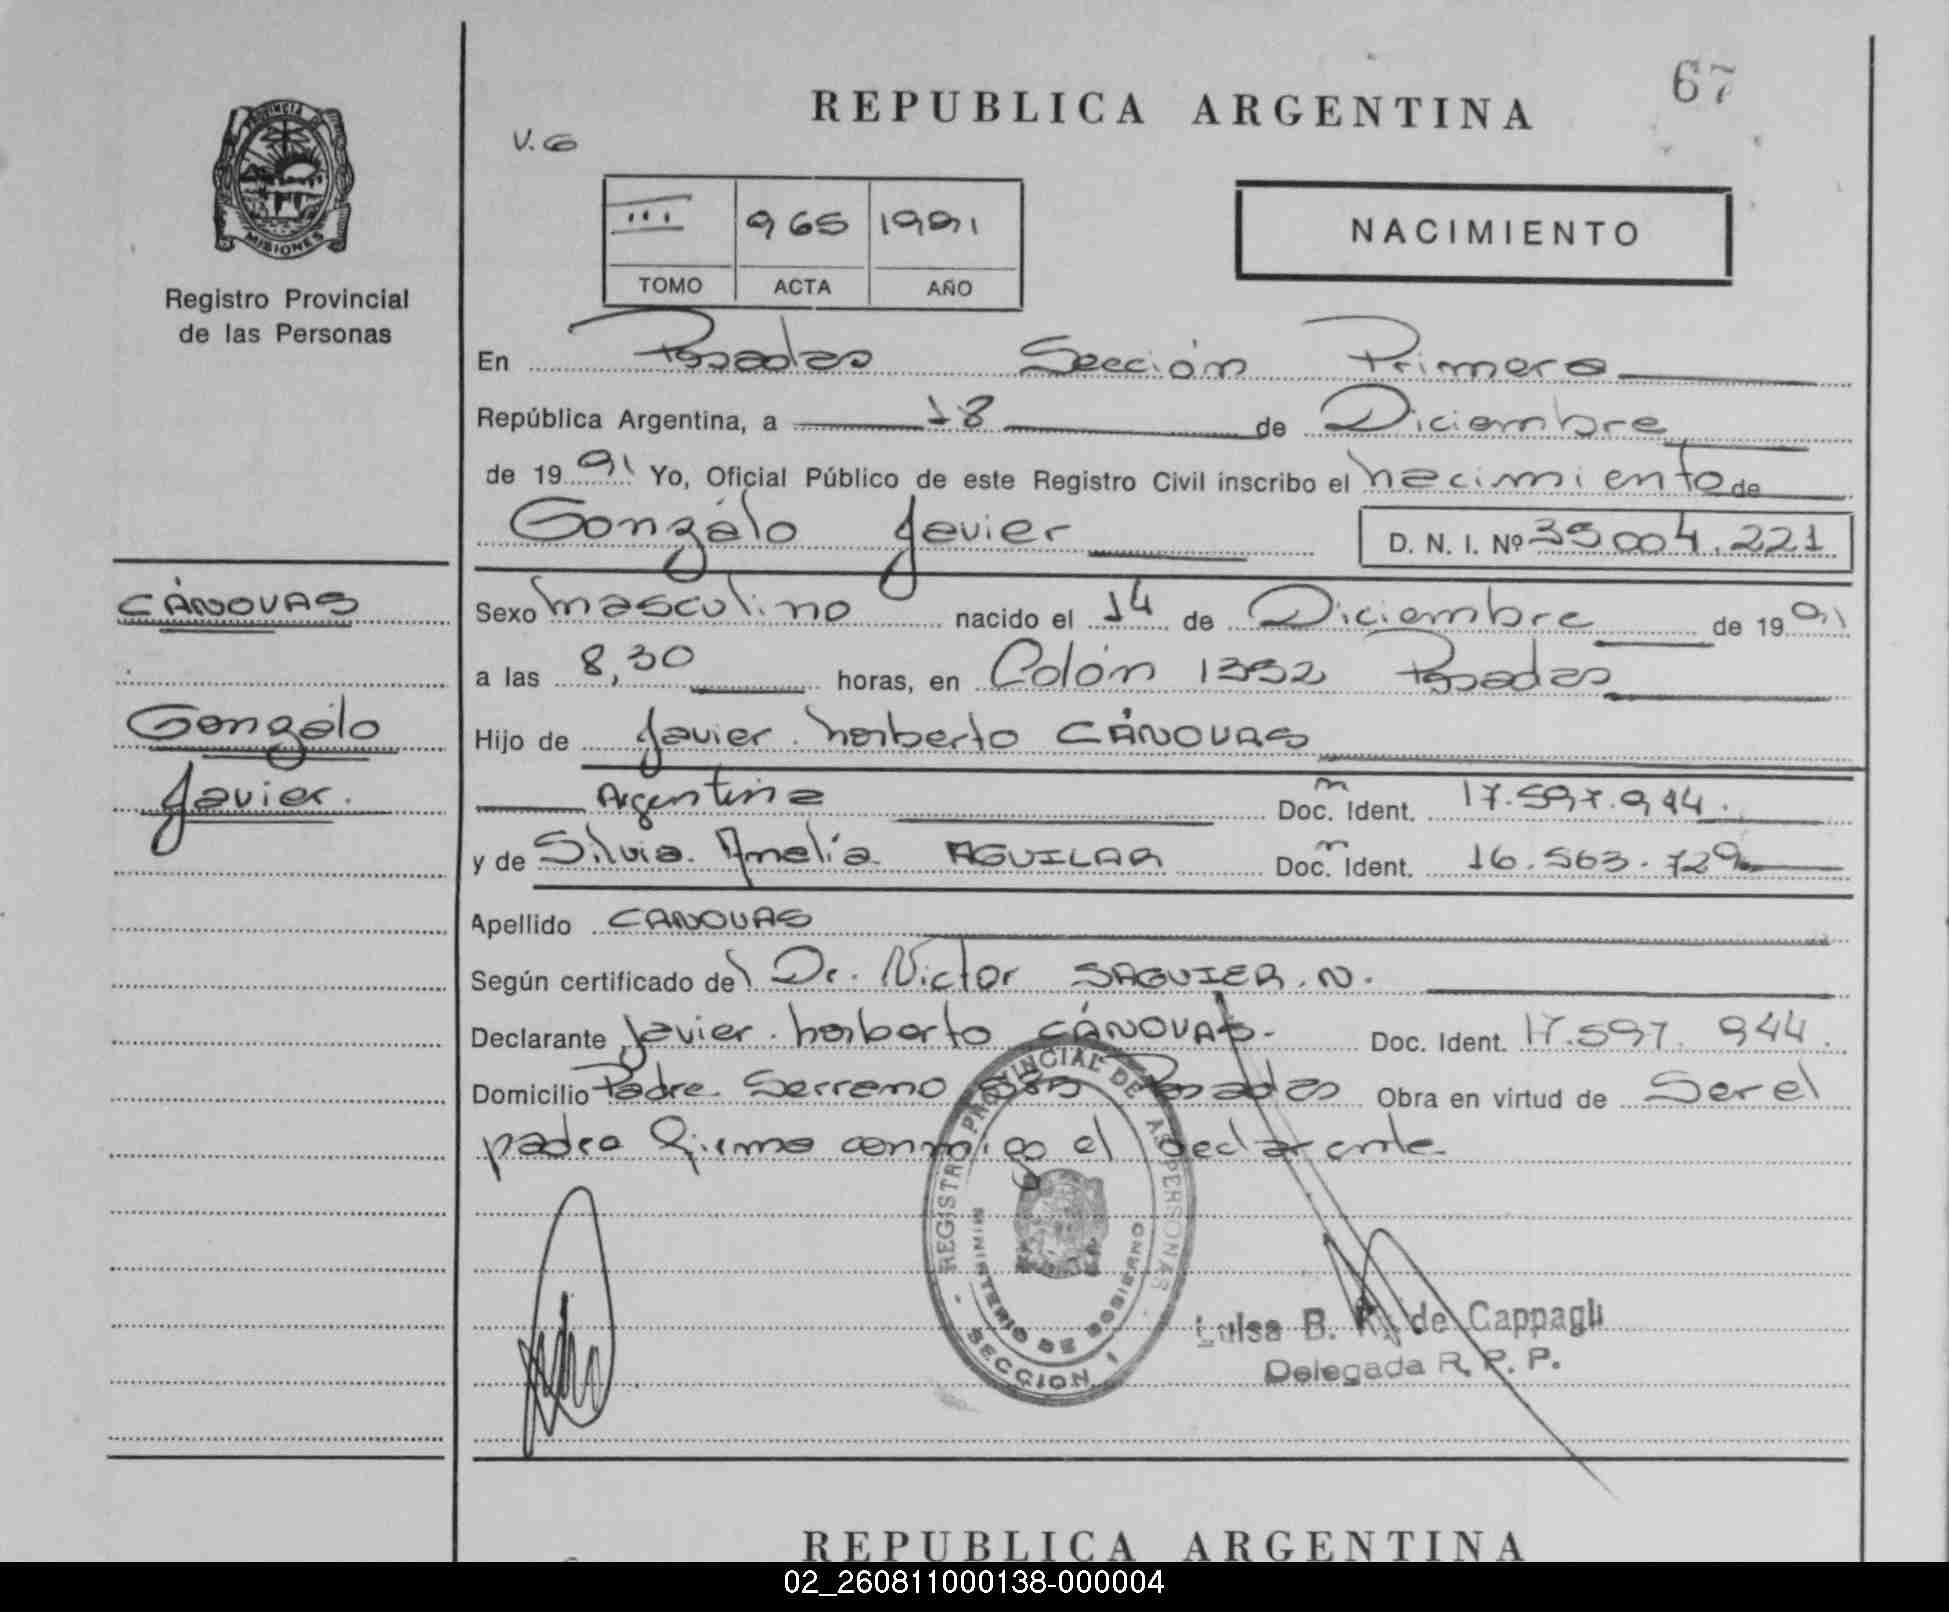 67
REPUBLICA ARGENTINA
V. G
PROVINCIA DE
MISIONES
Registro Provincial
de las Personas
III 965 1991
TOMO ACTA AÑO
NACIMIENTO
En Posadas Sección Primera
República Argentina, a 18 de Diciembre
de 1991 Yo, Oficial Público de este Registro Civil inscribo el nacimiento de
Gonzálo Javier D. N. I. Nº 35 004.221
CÁNOVAS
Gonzálo
Javier.
Sexo masculino nacido el 14 de Diciembre de 1991
a las 8,30 horas, en Colón 1352 Posadas
Hijo de Javier Norberto CÁNOVAS
Argentina Doc. m Ident. 17.597.944.
y de Silvia Amelia AGUILAR Doc. m Ident. 16.563.729
Apellido CANOVAS
Según certificado del Dr. Victor SAGUIER. N.
Declarante Javier Norberto CÁNOVAS. Doc. Ident. 17.597.944.
Domicilio Padre Serrano Posadas Obra en virtud de Ser el
padre Firma conmigo el declarante
REGISTRO PROVINCIAL DE LAS PERSONAS
MINISTERIO DE GOBIERNO
SECCION 1
Luisa B. R. de Cappagli
Delegada R. P. P.
REPUBLICA ARGENTINA
02_260811000138-000004